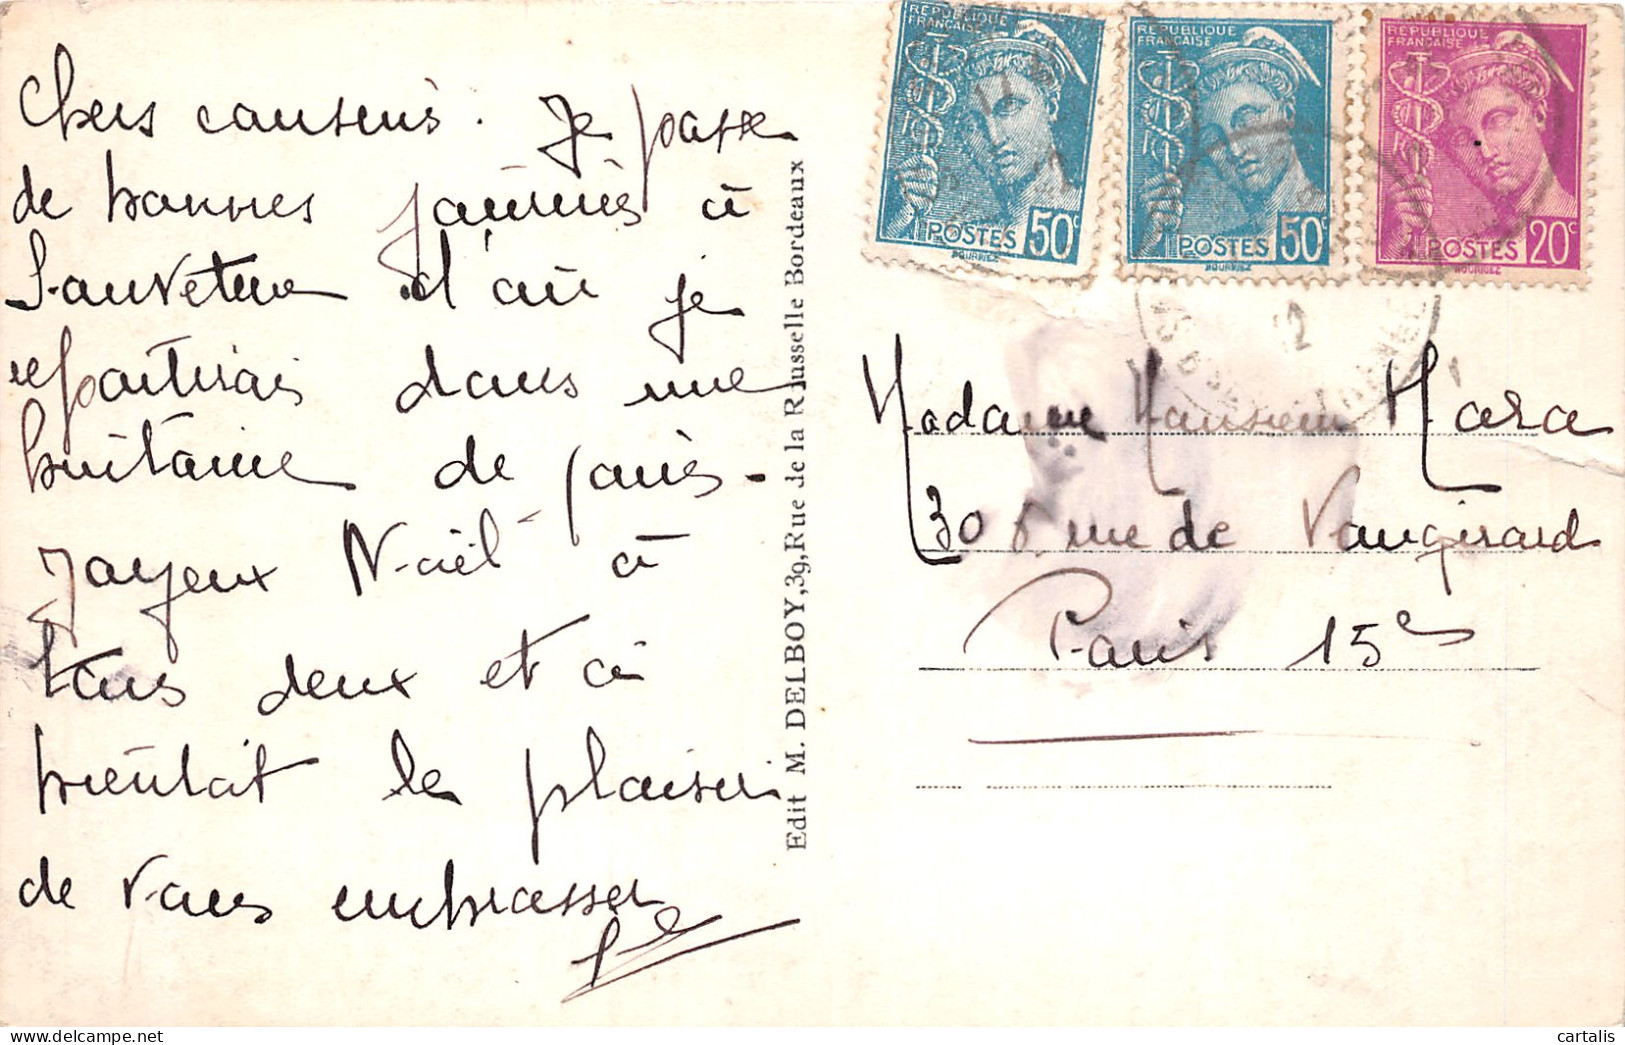 Chers cousins. Je passe
de bonnes journées à
Sauveterre d'où je
repartirai dans une
huitaine de jours -
Joyeux Noël à
tous deux et à
bientôt le plaisir
de vous embrasser
Edit M. DELBOY, 39, Rue de la Rousselle Bordeaux
RÉPUBLIQUE
FRANÇAISE
POSTES 50c
RÉPUBLIQUE
FRANÇAISE
POSTES 50c
RÉPUBLIQUE
FRANÇAISE
POSTES 20c
12
Madame Monsieur Mara
306 rue de Vaugirard
Paris 15e
cartalis